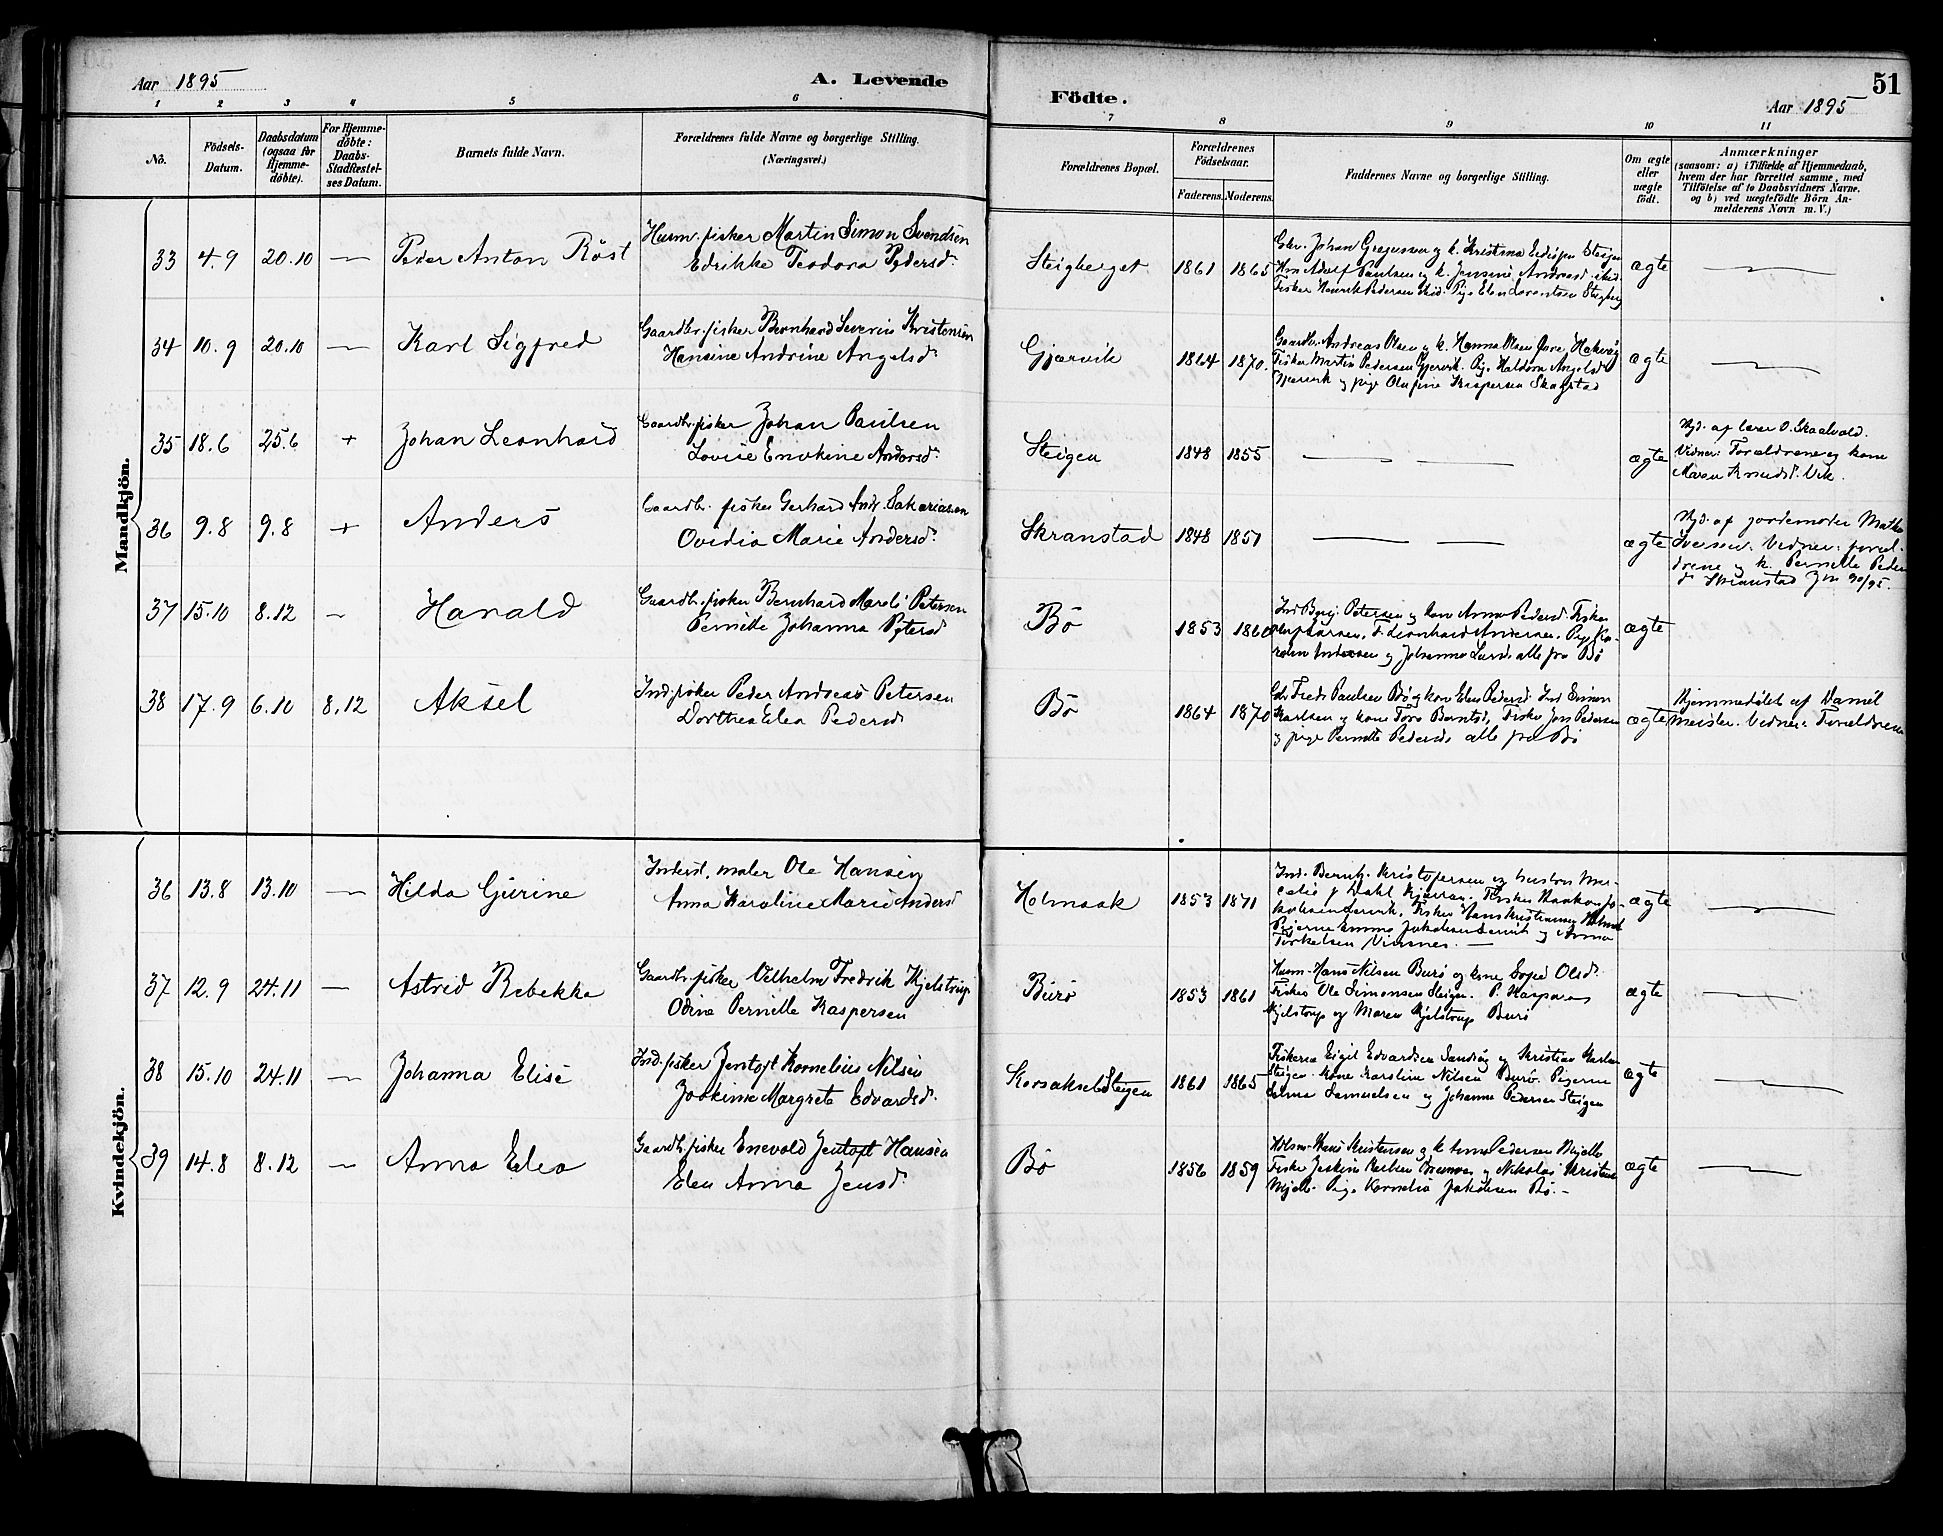 Aar 1895
A. Levende
Födte.
51
Aar 1895
1 2 3 4 5 6 7 8 9 10 11
No.
Födsels-
Datum.
Daabsdatum
(ogsaa for
Hjemme-
döbte).
For Hjemme-
döbte:
Daabs-
Stadfæstel-
ses Datum.
Barnets fulde Navn.
Forældrenes fulde Navne og borgerlige Stilling.
(Næringsvei.)
Forældrenes Bopæl.
Forældrenes
Födselsaar.
Faderens. Moderens.
Faddernes Navne og borgerlige Stilling.
Om ægte
eller
uægte
födt.
Anmærkninger
(saasom: a) i Tilfælde af Hjemmedaab,
hvem der har forrettet samme, med
Tilföielse af to Daabsvidners Navne.
og b) ved uægtefödte Börn An-
melderens Navn m. V.)
Mandkjön.
33 4.9 20.10 — Peder Anton Röst
Husm. fisker Martin Simon Svendsen
Edrikke Teodora Pedersd.
Steigberget 1861 1865
Johan Gregussen og k. Kristina Steigen
Adolf Paulsen og k. Jensine Andreasd. ibid.
Fisker Henrik Pedersen ibid. Pige Elen Lorentsen Steigberg
ægte —
34 10.9 20.10 — Karl Sigfred
Gaardbr. fisker Bernhard Severin Kristensen
Hansine Andrine Angelsd.
Gjærvik 1864 1870.
Gaardbr. Andreas Olsen og k. Hanna Olsen
Fisker Martin Pedersen Gjervik. Pige Angelsd.
Gjærvik og pige Olufine Kaspersen Skagstad
ægte —
35 18.6 25.6 + Johan Leonhard
Gaardbr. fisker Johan Paulsen
Lovise Enokine Andersd.
Steigen 1848 1855 — — ægte
Hjd. af lærer O. Skaalvold.
Vidner: Forældrene og kone
Maren Knudsd. Vik.
36 9.8 9.8 + Anders
Gaardbr. fisker Gerhard Andr. Sakariasen
Ovidia Marie Andersd.
Skranstad 1848 1851 — — ægte
Hjd. af jordemoder
Iversen. Vidner: foræl-
drene og k. Pernille Peders
d. Skranstad
37 15.10 8.12 — Harald
Gaardbr. fisker Bernhard Mareli Petersen
Pernille Johanna Petersd
Bø 1853 1860
Petersen og kone Anna Pedersd. Fisker
Larsen, F. Leonhard Andersen. Pige Ka-
Andersen og Johanna Larsd. alle fra Bö
ægte
38 17.9 6.10 8.12 Aksel
Ind. fisker Peder Andreas Petersen
Dorthea Elea Pedersd.
Bø 1864 1870
Fredr. Paulsen Bö og kone Elen Pedersd. Ind. Simon
Karlsen og kone Berntsd., Fisker Jens Pedersen
og pige Pernille Pedersd. alle fra Bö
ægte
Hjemmedøbt af Daniel
Meisler. Vidner: Forældrene
Kvindekjön.
36 13.8 13.10 — Hilda Gjurine
Inderst, maler Ole Hansen
Anna Karoline Marie Andersd
Holmaak 1853 1871
Ind. Bernh. Kristofersen og hustru
Dahl Fisker Haakon Ja-
kobsen Fisker Hans Kristiansen
Pigerne Emma Jakobsen og Anna
Torkelsen Vinsnes. —
ægte —
37 12.9 24.11 — Astrid Rebekka
Gaardbr. fisker Vilhelm Fredrik Kjelstrup
Odine Pernille Kaspersen
Burö 1853 1861
Husm. Hans Nilsen Burö og kone Olsd.
Fisker Ole Simonsen Steigen. P. Kaspara
Kjelstrup og Maren Kjelstrup Burö
ægte —
38 15.10 24.11 — Johanna Elise
Ind. fisker Jentoft Kornelius Nilsen
Joakime Margrete Edvardsd.
Korsaksel Steigen 1861 1865
Fiskerne Eigil Edvardsen og Kristian
Steigen. Kone Karoline Nilsen Burö. Pigerne
Selma Samuelsen og Johanna Pedersen Steigen
ægte —
39 14.8 8.12 — Anna Elea
Gaardb. fisker Enevold Jentoft Hansen
Elen Anna Jensd.
Bø 1856 1859
Hans Kristensen og k. Anna Pedersen Mjelle
Fisker og Nikolai Kristensen
Mjelle. Pige Kornelia Jakobsen Bø. —
ægte —